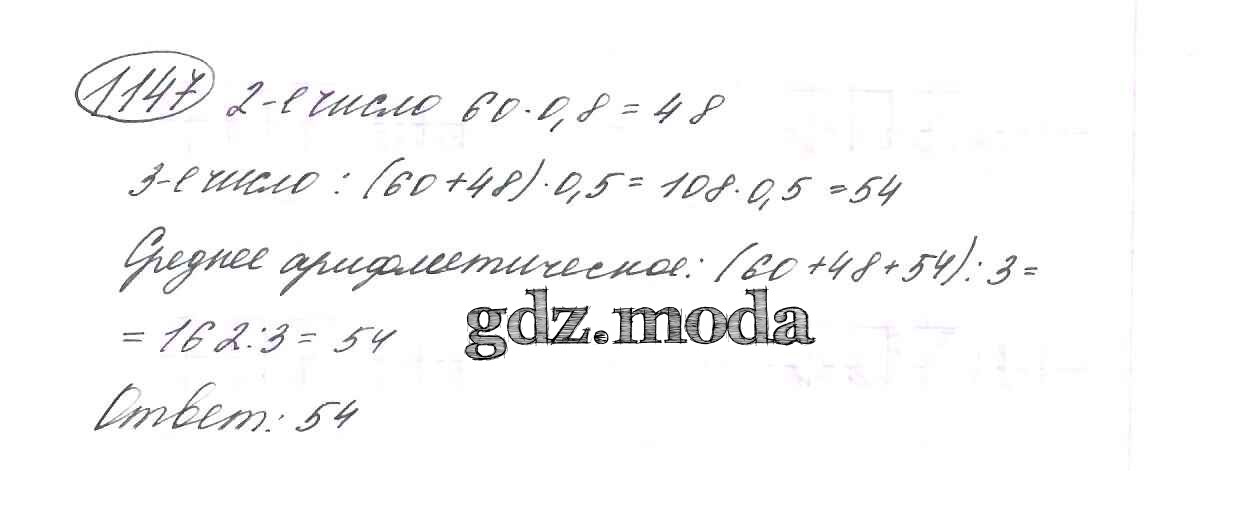 1147 2-е число 60·0,8 = 48
3-е число : (60+48)·0,5 = 108·0,5 = 54
Среднее арифметическое: (60+48+54):3 =
= 162:3 = 54
gdz.moda
Ответ: 54